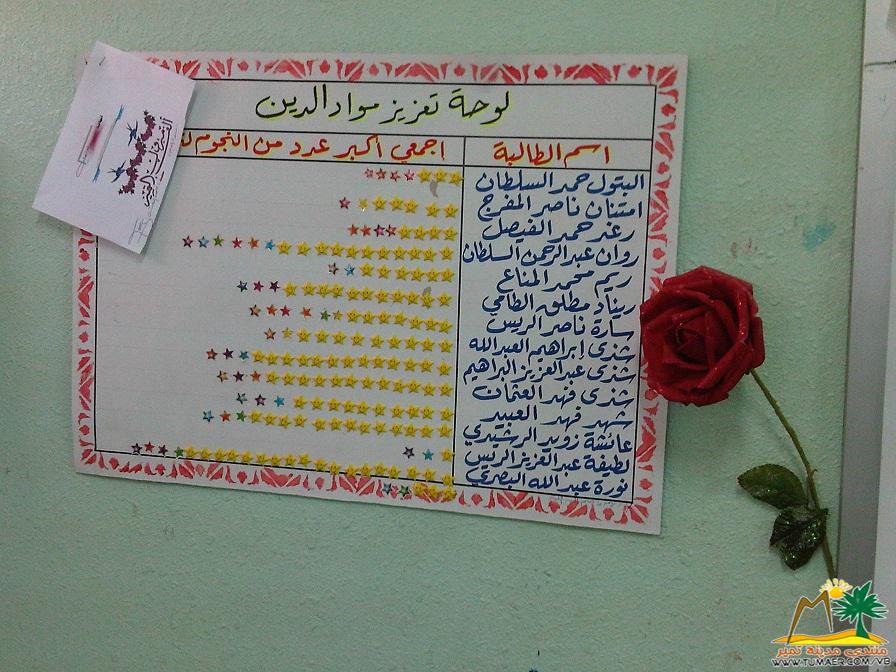 لوحة تعزيز مواد الدين
اسم الطالبة
اجمعي اكبر عدد من النجوم
البتول حمد السلطان
امتنان ناصر المفرج
رغد حمد الفيصل
روان عبدالرحمن السلطان
ريم محمد المناع
ريناد مطلق الطامي
سارة ناصر الريس
شذى إبراهيم العبدالله
شذى عبدالعزيز البراهيم
شذى فهد العثمان
شهد فهد العبيد
عائشة زويد الرشيدي
لطيفة عبدالعزيز الريس
نورة عبدالله البصري
منتدى مدينة تمير
WWW.TUMAER.COM/VB